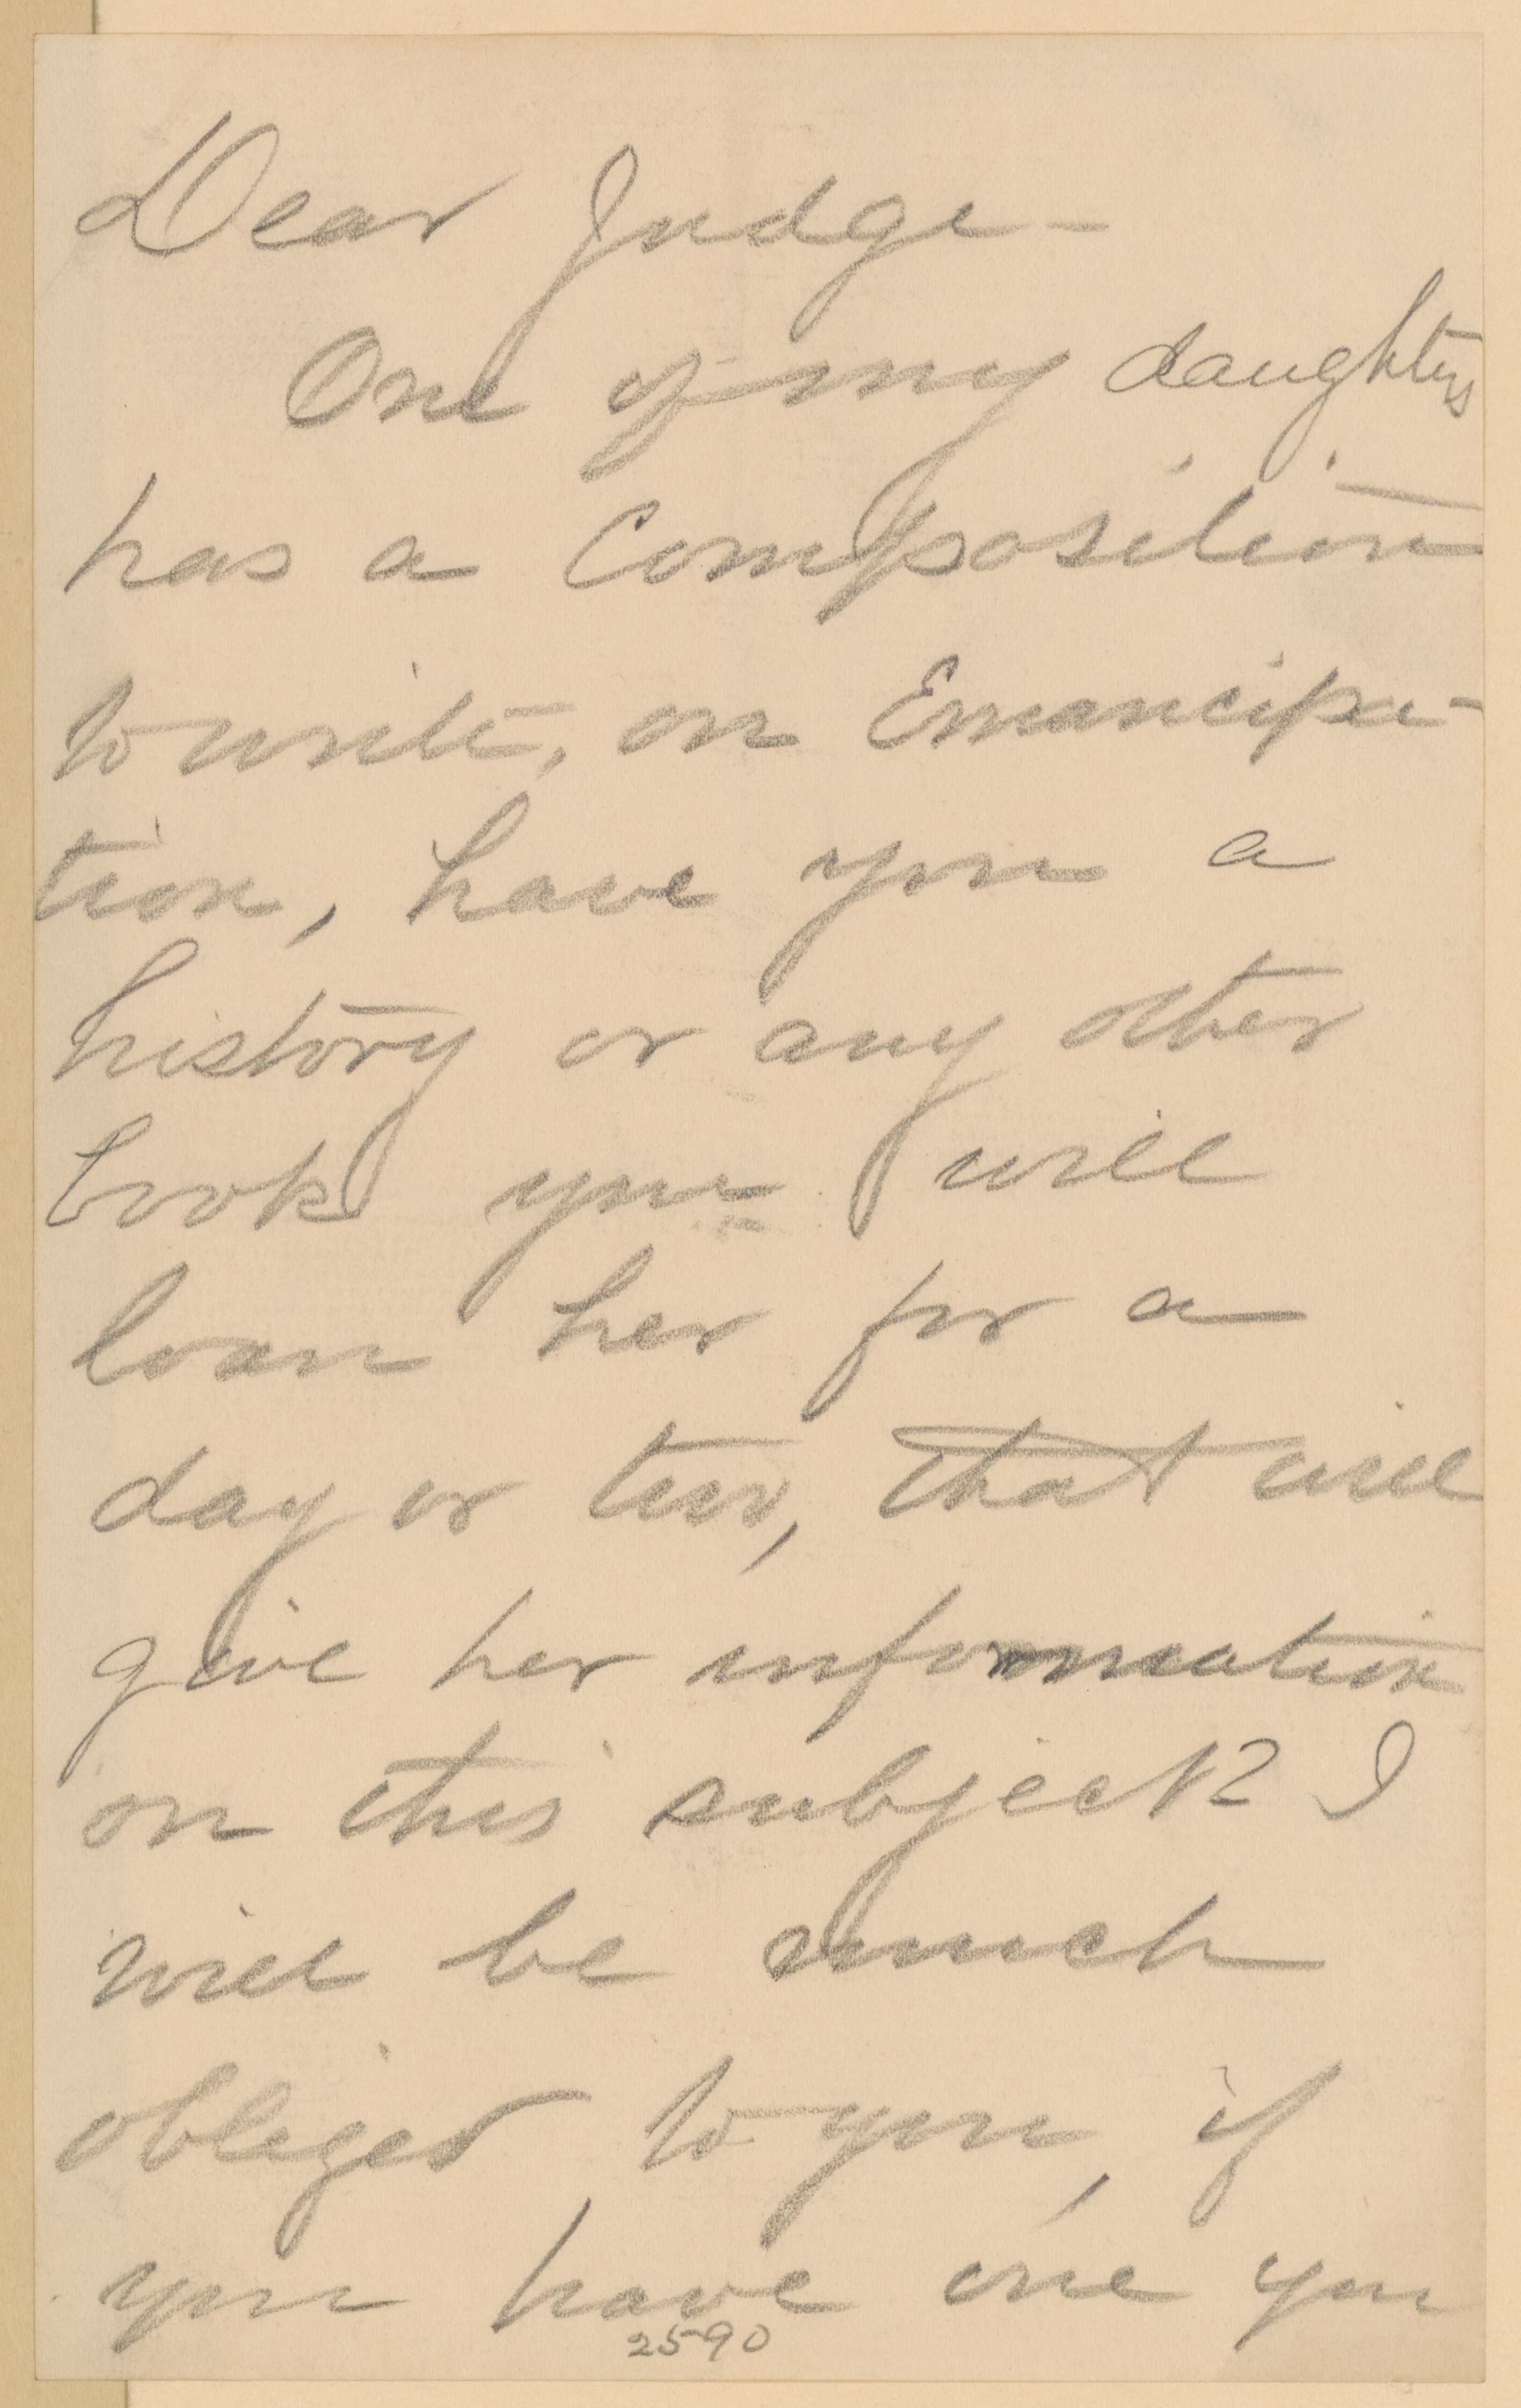 Dear Judge -
One of my daughters
has a Composition
to write, on Emancipa-
tion, have you a
history or any other
book you will
loan her for a
day or two, that will
give her information
on this subject? I
will be much
obliged to you, if
you have one you
2590